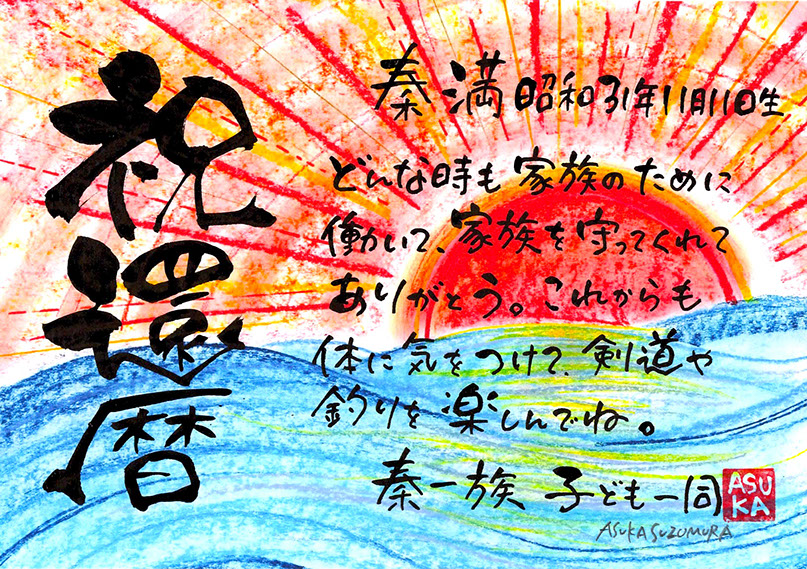 祝還暦
秦満 昭和31年11月11日生
どんな時も家族のために
働いて、家族を守ってくれて
ありがとう。これからも
体に気をつけて、剣道や
釣りを楽しんでね。
秦一族 子ども一同
ASU
KA
ASUKA SUZUMURA